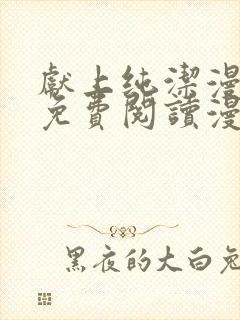 獻上純潔漫
免費閱讀漫
黑夜的大白兔